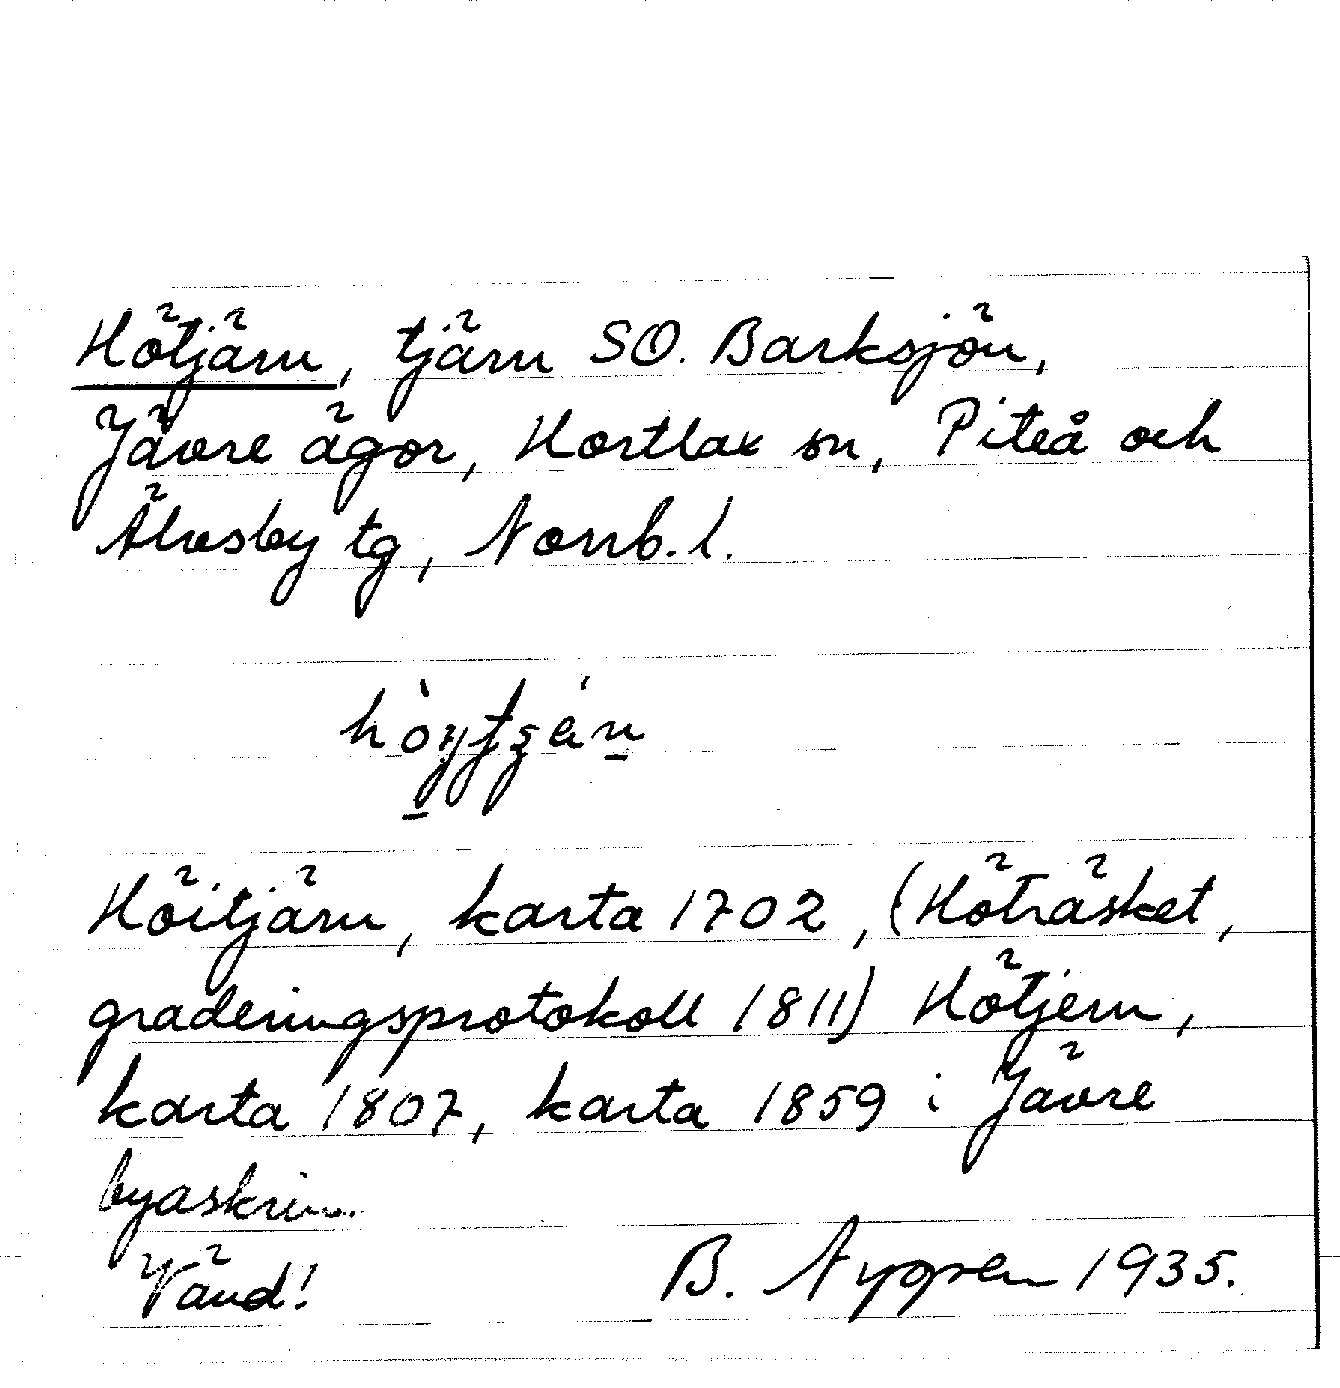 Hötjärn, tjärn SO. Barksjön,
Jävre ägor, Hortlax sn, Piteå och
Älvsby tg, Norrb. l.
Höitjärn, karta 1702, (Höträsket,
graderingsprotokoll 1811) Hötjern,
karta 1807, karta 1859 i Jävre
byaskrin.
Vänd! B. Nygren 1935.